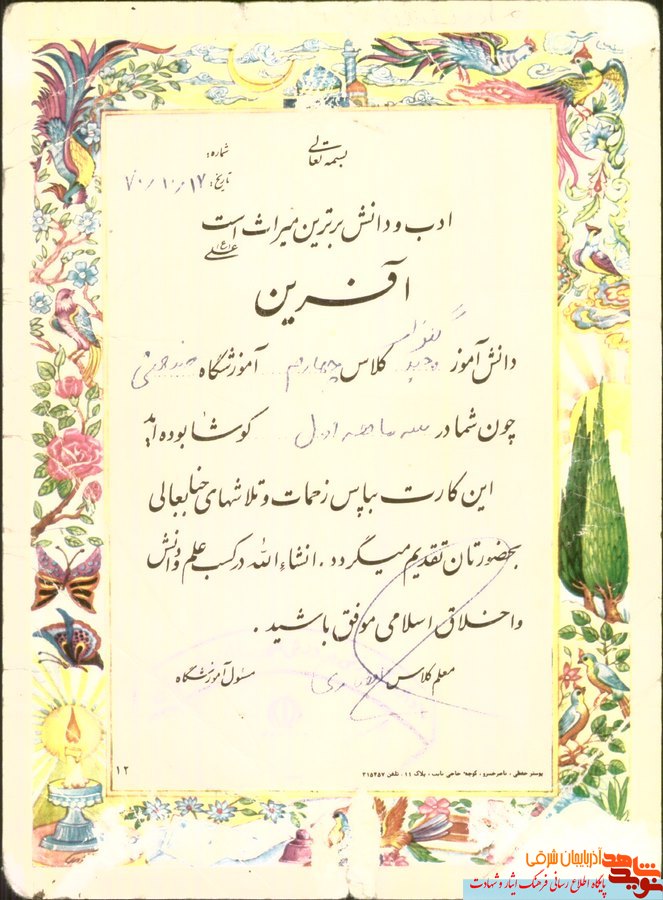 بسمه تعالی
شماره:
تاریخ: ۷۰/۱۰/۱۷
ادب و دانش برترین میراث است
علی (ع)
آفرین
دانش آموز وحید کلاس چهارم آموزشگاه
چون شما در سه ماهه اول کوشا بوده اید
این کارت بپاس زحمات و تلاشهای جنابعالی
بحضورتان تقدیم میگردد. انشاءالله در کسب علم و دانش
و اخلاق اسلامی موفق باشید.
معلم کلاس مسئول آموزشگاه
پوستر حقطی ، ناصرخسرو ، کوچه حاجی نایب ، پلاک ۱۱ ، تلفن ۳۱۵۳۵۷
۱۲
نوید شاهد آذربایجان شرقی
پایگاه اطلاع رسانی فرهنگ ایثار و شهادت